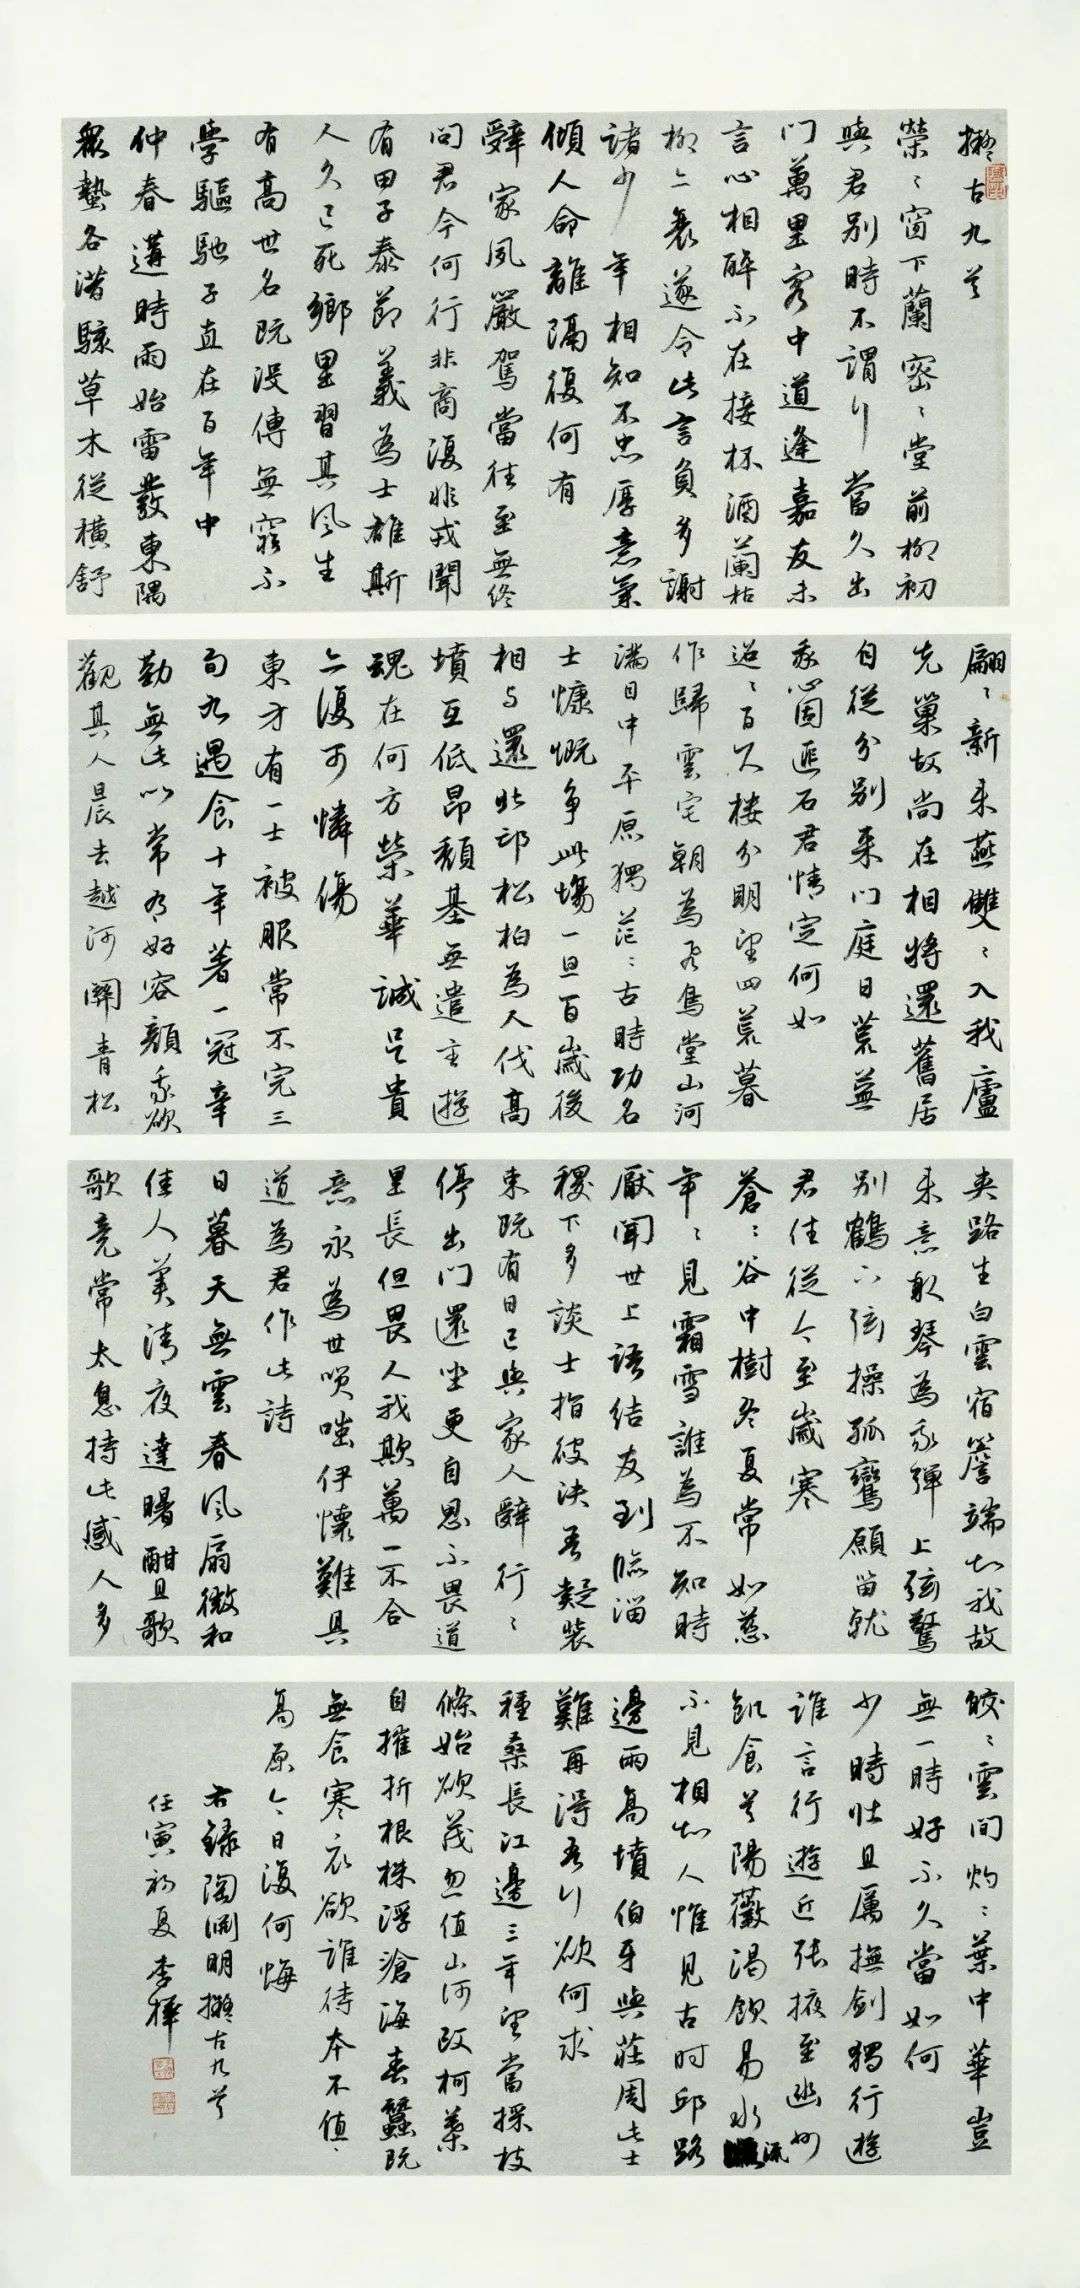 擬古九首
榮〻窗下蘭密〻堂前柳初
與君別時不謂行當久出
門萬里客中道逢嘉友未
言心相醉不在接杯酒蘭枯
柳亦衰遂令此言負多謝
諸少年相知不忠厚意氣
傾人命離隔復何有
辭家夙嚴駕當往至無終
問君今何行非商復非戎聞
有田子泰節義為士雄斯
人久已死鄉里習其風生
有高世名既沒傳無窮不
學驅馳子直在百年中
仲春遘時雨始雷發東隅
眾蟄各潛駭草木從橫舒
翩〻新來燕雙〻入我廬
先巢故尚在相將還舊居
自從分別來門庭日荒蕪
我心固匪石君情定何如
迢〻百尺樓分明望四荒暮
作歸雲宅朝為飛鳥堂山河
滿目中平原獨茫〻古時功名
士慷慨爭此場一旦百歲後
相与還北邙松柏為人伐高
墳互低昂頹基無遺主遊
魂在何方榮華誠足貴
亦復可憐傷
東方有一士被服常不完三
旬九遇食十年著一冠辛
勤無此比常有好容顏我欲
觀其人晨去越河關青松
夾路生白雲宿簷端知我故
來意取琴為我彈上弦驚
別鶴下弦操孤鸞願留就
君住從今至歲寒
蒼〻谷中樹冬夏常如茲
年〻見霜雪誰為不知時
厭聞世上語結友到臨淄
稷下多談士指彼決吾疑裝
束既有日已與家人辭行〻
停出門還坐更自思不畏道
里長但畏人我欺萬一不合
意永為世笑嗤伊懷難具
道為君作此詩
日暮天無雲春風扇微和
佳人美清夜達曙酣且歌
歌竟常太息持此感人多
皎〻雲間灼〻葉中華豈
無一時好不久當如何
少時壯且厲撫劍獨行遊
誰言行遊近張掖至幽州
飢食首陽薇渴飲易水流
不見相知人惟見古時邱路
邊兩高墳伯牙與莊周此士
難再得吾行欲何求
種桑長江邊三年望當採枝
條始欲茂忽值山河改柯葉
自摧折根株浮滄海春蠶既
無食寒衣欲誰待本不值〻
高原今日復何悔
右錄陶淵明擬古九首
任寅初夏李樺